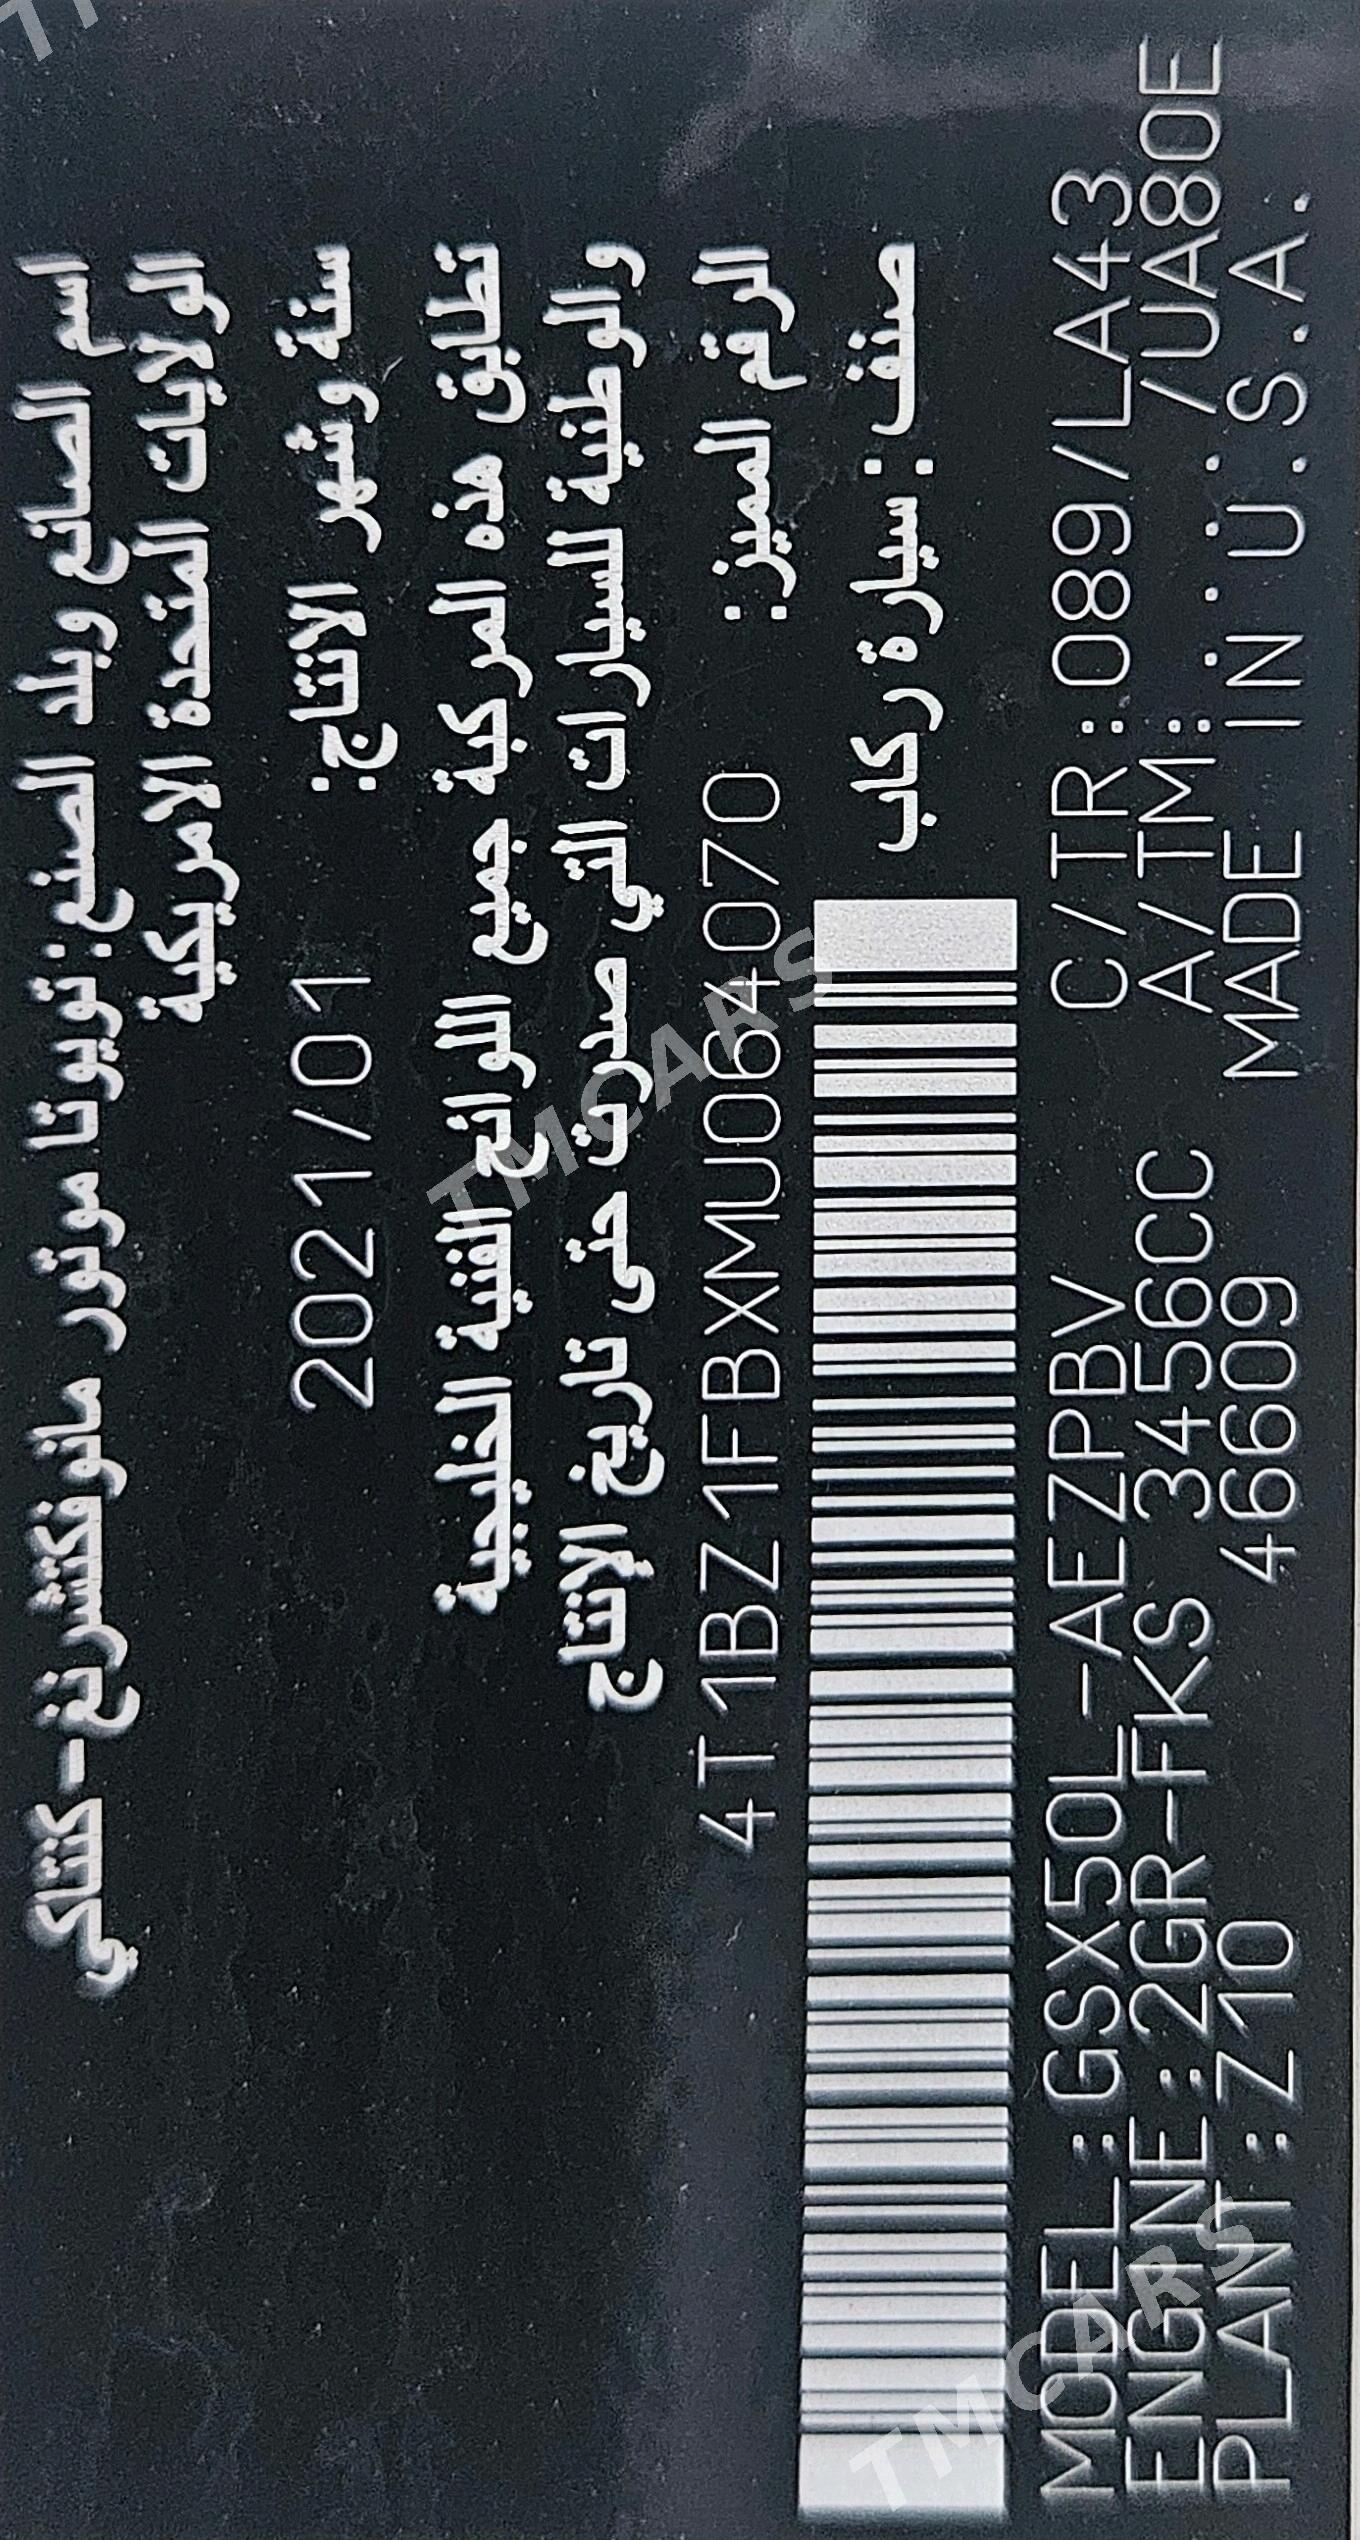 اسم الصانع وبلد الصنع: تويوتا موتور مانوفكتشرنغ-كنتاكي
الولايات المتحدة الامريكية
سنة وشهر الانتاج: 2021/01
تطابق هذه المركبة جميع اللوائح الفنية الخليجية
والوطنية للسيارات التي صدرت حتى تاريخ الإنتاج
الرقم المميز: 4T1BZ1FBXMU064070
صنف: سيارة ركاب
MODEL:GSX50L-AEZPBV C/TR:089/LA43
ENGINE:2GR-FKS 3456CC A/TM:..../UA80E
PLANT:Z10 46609 MADE IN U.S.A.
TMCARS
TMCARS